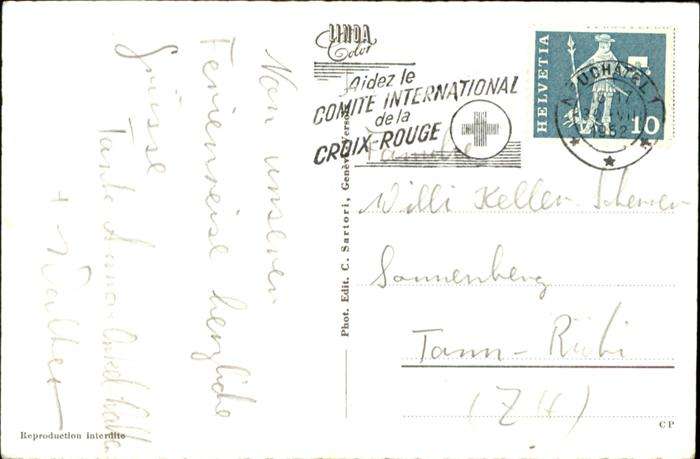 LINDA
Color
Aidez le
COMITE INTERNATIONAL
de la
CROIX-ROUGE
HELVETIA
10
NEUCHÂTEL 1
Von unserer
Ferienreise herzliche
Grüsse
Tante Anna
+ Walter
Phot. Edit. C. Sartori, Genève
Familie
Willi Keller-Scherrer
Sonnenberg
Tann-Rüti
(ZH)
Reproduction interdite
CP